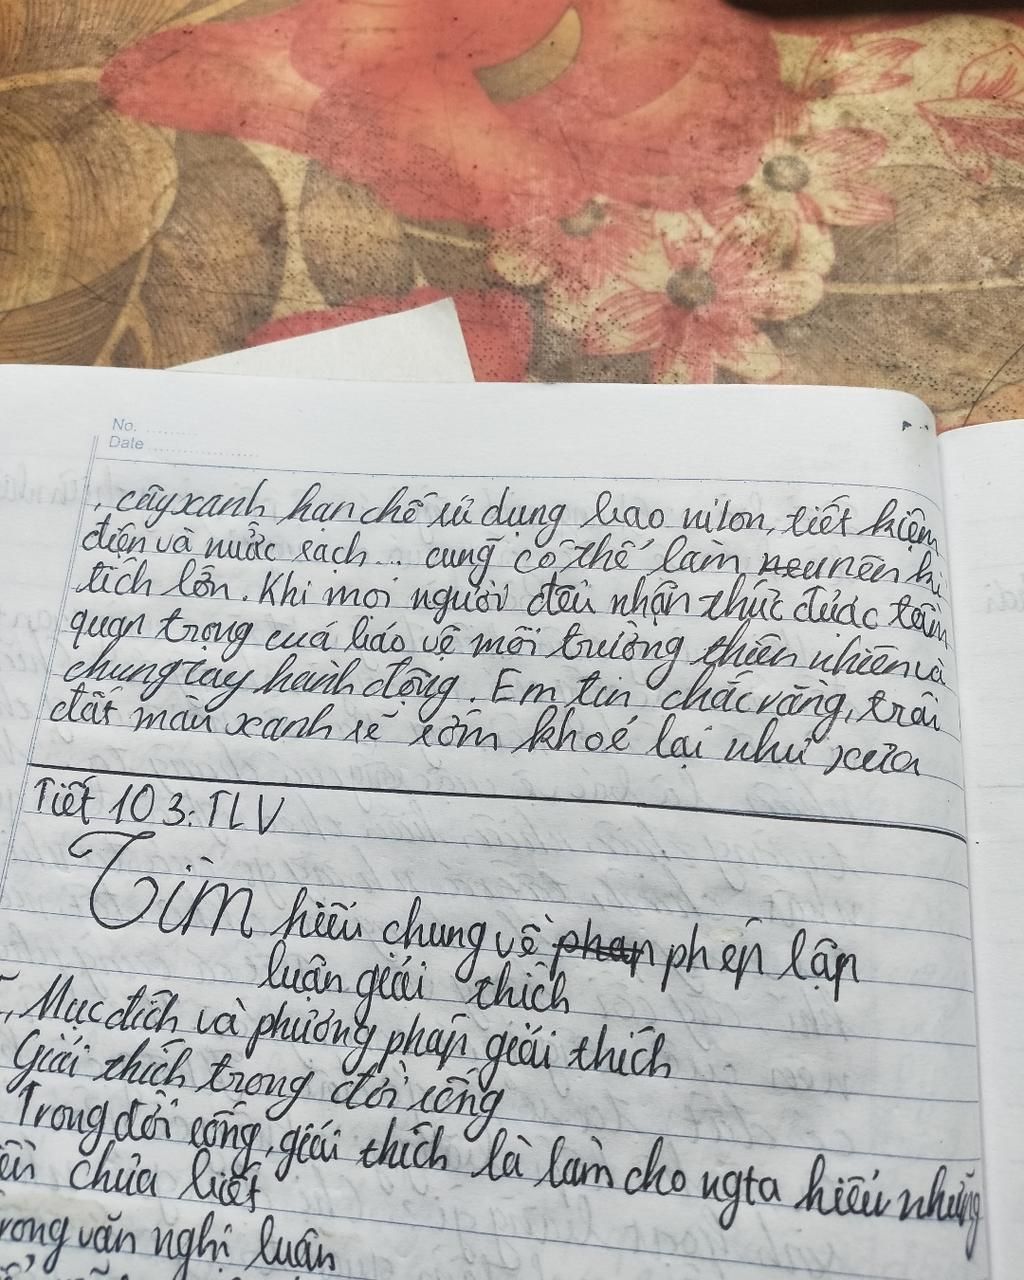 No.
Date
, cây xanh hạn chế sử dụng bao nilon, tiết kiệm
điện và nước sạch... cũng có thể làm nên kì
tích lớn. Khi mọi người đều nhận thức được tầm
quan trọng cuả bảo vệ môi trường thiên nhiên và
chung tay hành động. Em tin chắc rằng, trái
đất màu xanh sẽ sớm khoẻ lại như xưa
Tiết 103: TLV
Tìm hiểu chung về phép lập
luận giải thích
, Mục đích và phương pháp giải thích
Giải thích trong đời sống
Trong đời sống, giải thích là làm cho ngta hiểu những
chưa biết
rong văn nghị luận